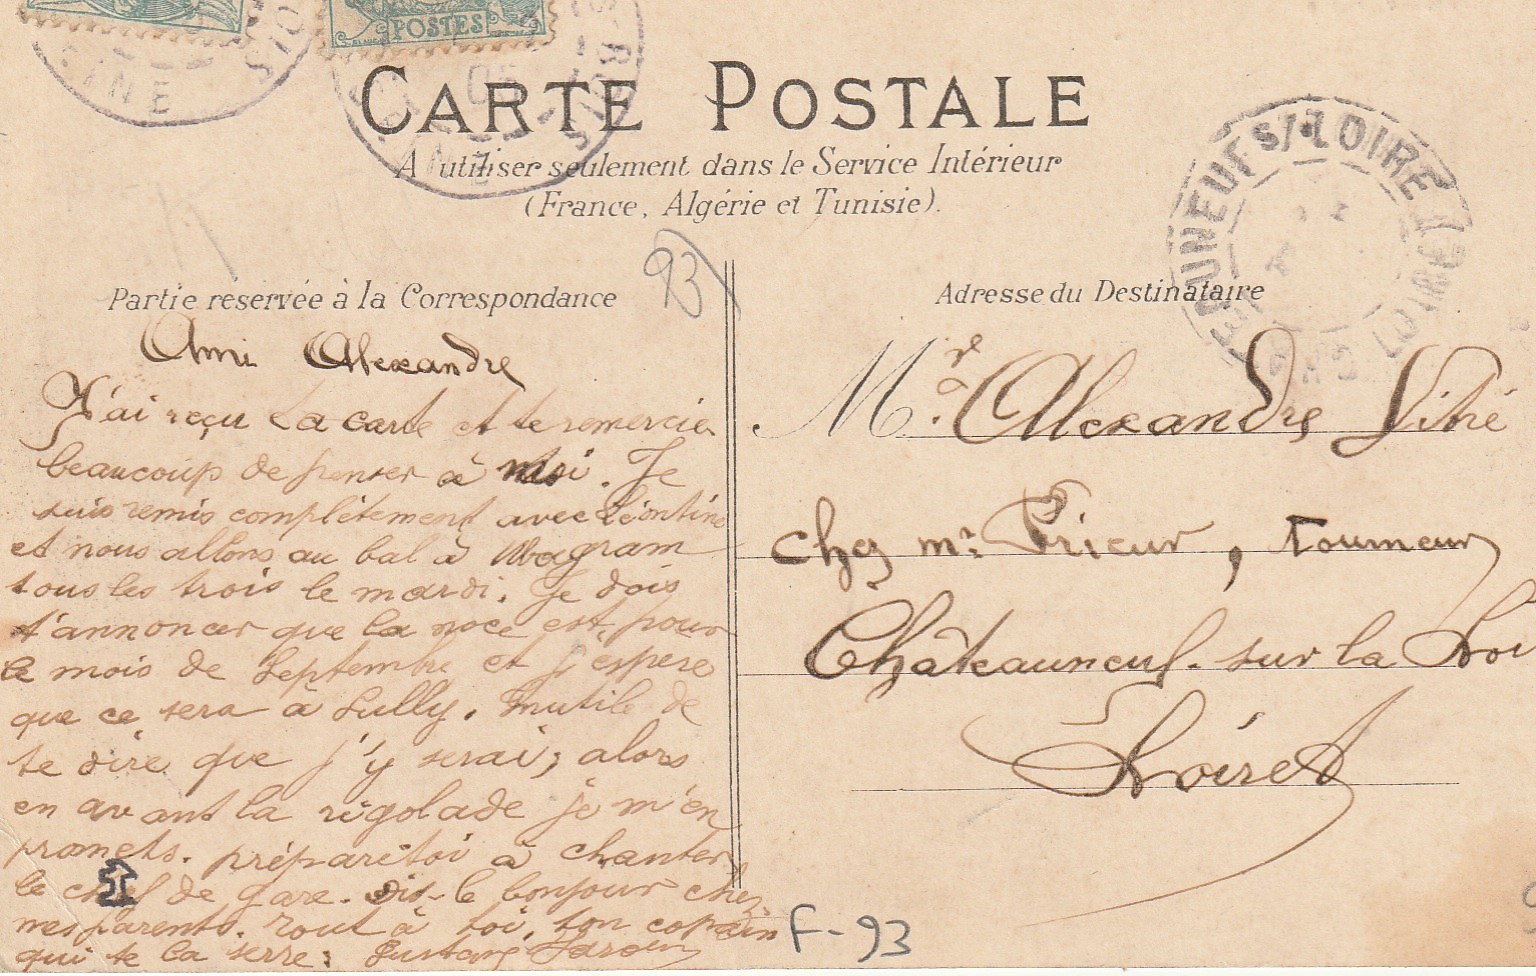 POSTES
CARTE POSTALE
A utiliser seulement dans le Service Intérieur
(France, Algérie et Tunisie).
93
Partie réservée à la Correspondance
Ami Alexandre
J'ai reçu ta carte et te remercie
beaucoup de penser à moi. Je
suis remis complètement avec Léontine
et nous allons au bal à Wagram
tous les trois le mardi. Je dois
t'annoncer que la noce est pour
le mois de Septembre et j'espère
que ce sera à Sully. Inutile de
te dire que j'y serai; alors
en avant la rigolade je m'en
promets. prépare toi à chanter
le chef de gare. Dis-le bonjour chez
mes parents. Tout à toi, ton copain
qui te la serre: Gustave
Adresse du Destinataire
Mr. Alexandre Vitré
chez mr Prieur, tourneur
Châteauneuf-sur la Loi
Loiret
F-93